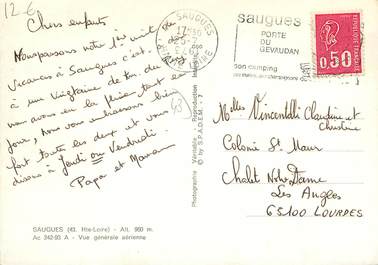 12-6
Chers enfants
Nous passons notre 1ère nuit de
vacances à Saugues c'est
à une vingtaine de km du
nous avons eu la pluie tout le
jour, nous vous embrassons bien
fort toutes les deux et vous
disons à Jeudi ou Vendredi.
Papa et Maman
43
SAUGUES
HTE LOIRE
saugues
PORTE
DU
GEVAUDAN
son camping
REPUBLIQUE FRANCAISE
0,50
POSTES
Melles Vincentelli Claudine et
Christine
Colonie St. Maur
Chalet Notre Dame
Les Angles
65100 LOURDES
Photographie Véritable - Reproduction Interdite
© by S.P.A.D.E.M. - 7
SAUGUES (43. Hte-Loire) - Alt. 960 m.
Ac 342-93 A - Vue générale aérienne